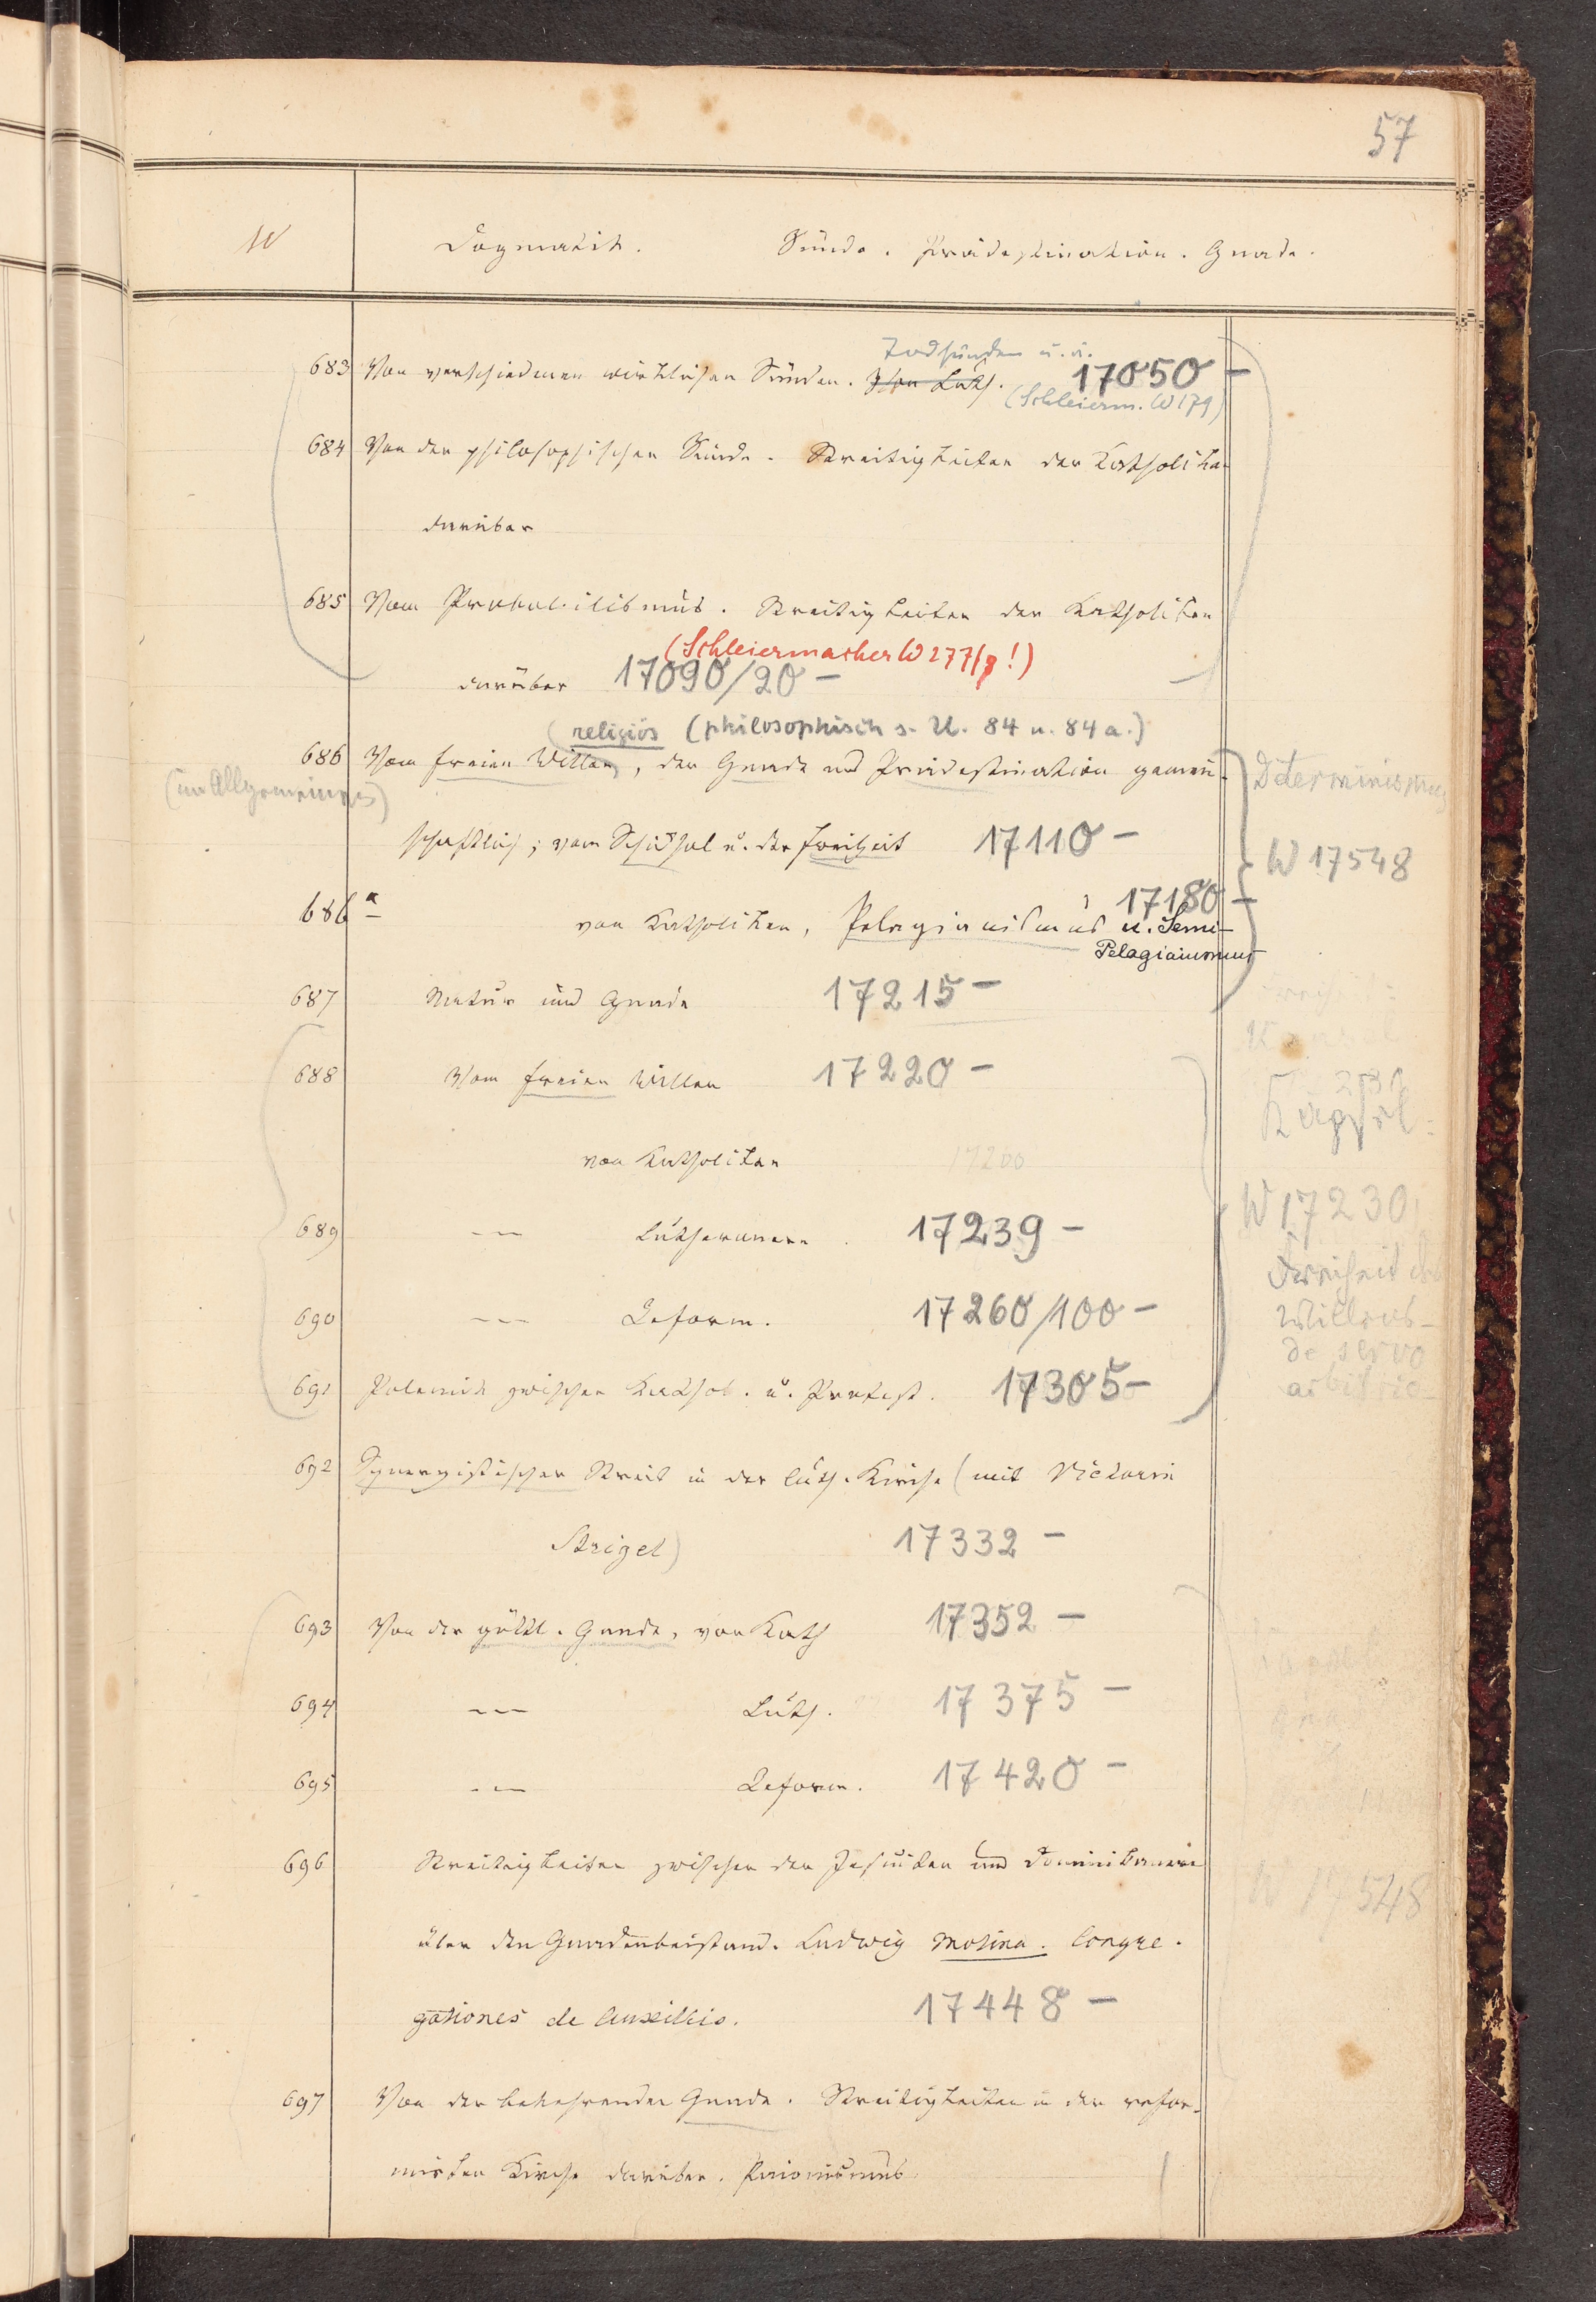 57
W Dogmatik. Sünde. Prädestination. Gnade.
Todsünden u. a.
683 Von verschiedenen wirklichen Sünden. Von Luth. 17050 -
(Schleierm. W 179)
684 Von der philosophischen Sünde. Streitigkeiten der Katholiken
darüber
685 Vom Probabilismus. Streitigkeiten der Katholiken
(Schleiermacher W 277/9!)
darüber 17090/20 -
(religiös (philosophisch s. U. 84 u. 84 a.)
686 Vom freien Willen, der Gnade und Prädestination gemein-
(im Allgemeinen)
Determinismus
schaftlich; vom Schicksal u. der Freiheit 17110 -
W 17548
17180 -
686a von Katholiken, Pelagianismus u. Semi-
Pelagianismus
687 Natur und Gnade 17215 -
688 Vom freien Willen 17220 -
Kapsel:
von Katholiken 17200
W 17230
689 --- Lutheranern 17239 -
Freiheit des
Willens-
de servo
arbitrio-
690 --- Reform. 17260/100 -
691 Polemik zwischen Kathol. u. Protest. 17305 -
692 Synergistischer Streit in der luth. Kirche (mit Victorin
Strigel) 17332 -
693 Von der göttl. Gnade, von Kath 17352 -
694 --- Luth. 17375 -
695 --- Reform. 17420 -
696 Streitigkeiten zwischen den Jesuiten und Dominikanern
W 17548
über den Gnadenbeistand. Ludwig Molina. Congre-
gationes de Auxiliis. 17448 -
697 Von der bekehrenden Gnade. Streitigkeiten in der refor-
mirten Kirche darüber. Pajonismus.